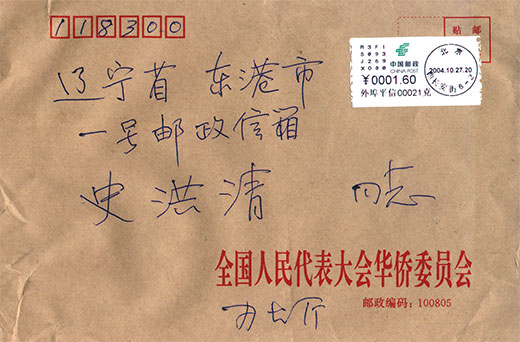 118300
贴 邮
R3F1
5093
J269
X000
中国邮政
CHINA POST
¥0001.60
外埠平信00021克
北京
2004.10.27.20
辽宁省 东港市
一号邮政信箱
史洪清 同志
全国人民代表大会华侨委员会
邮政编码：100805